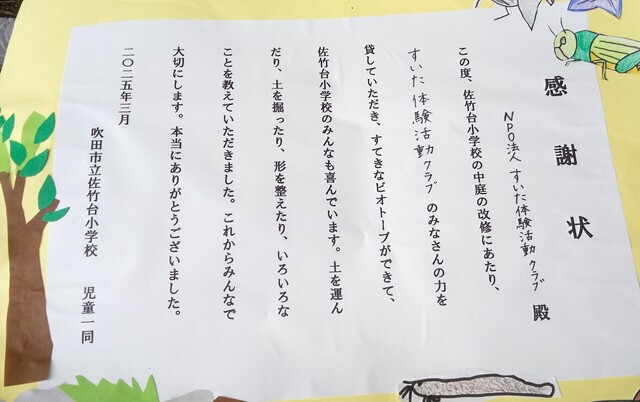 感謝状
NPO法人 すいた体験活動クラブ 殿
この度、佐竹台小学校の中庭の改修にあたり、
すいた体験活動クラブ のみなさんの力を
貸していただき、すてきなビオトープができて、
佐竹台小学校のみんなも喜んでいます。土を運ん
だり、土を掘ったり、形を整えたり、いろいろな
ことを教えていただきました。これからみんなで
大切にします。本当にありがとうございました。
二〇二五年三月
吹田市立佐竹台小学校 児童一同